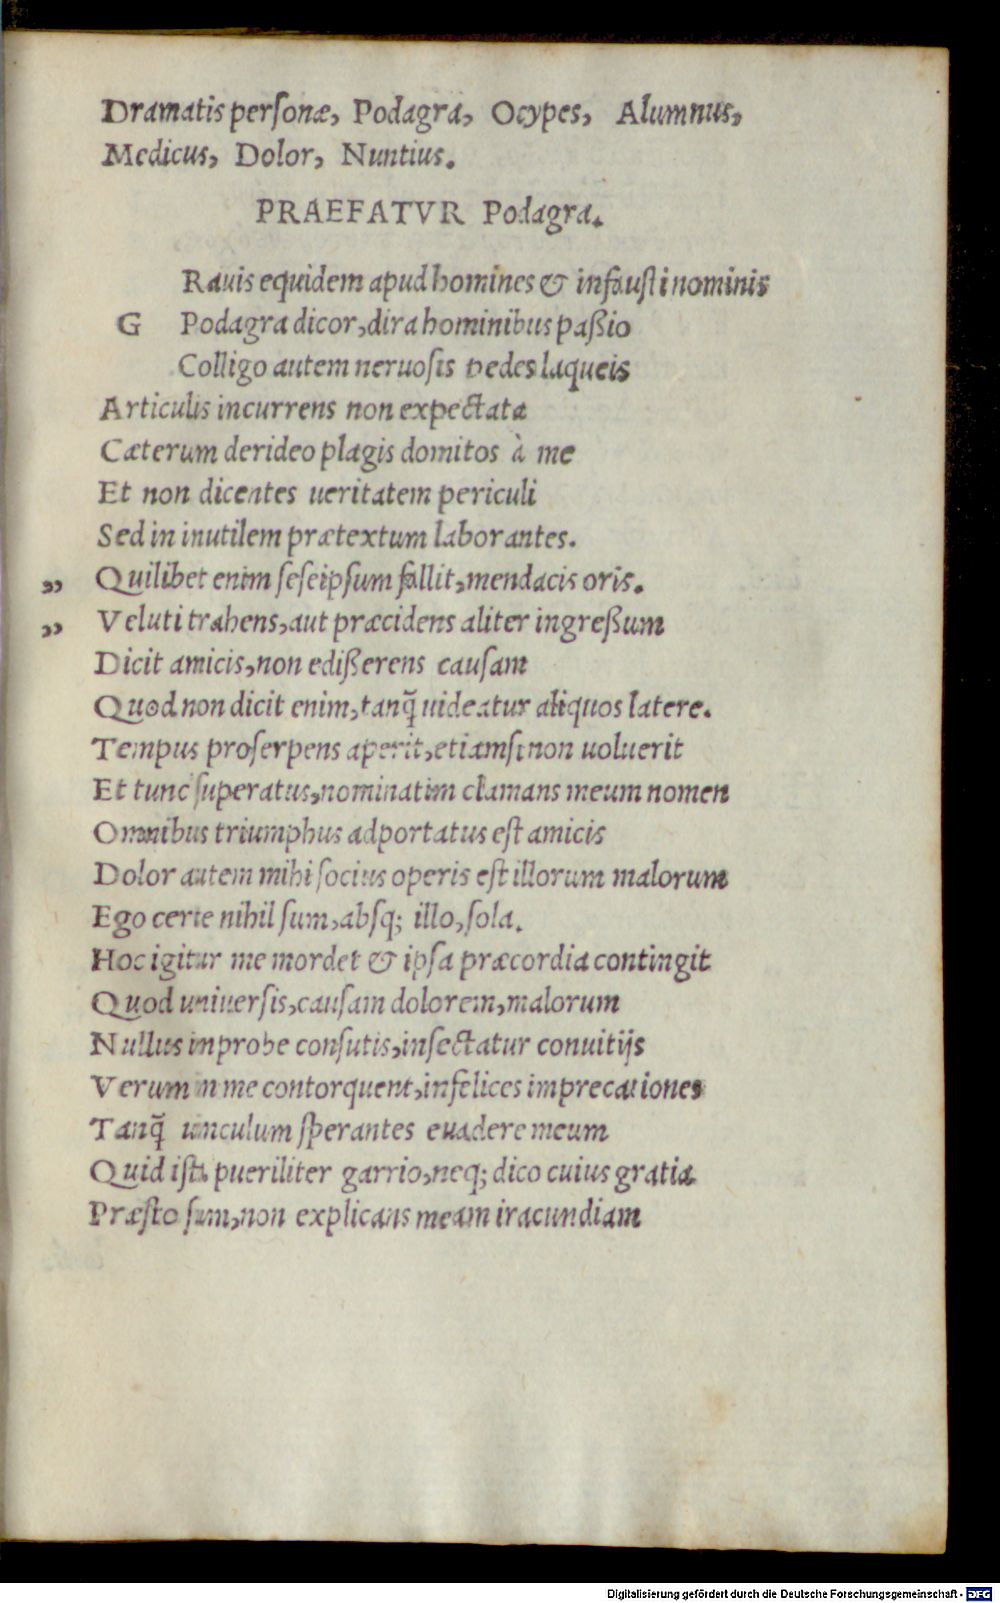 Dramatis personæ, Podagra, Ocypes, Alumnus,
Medicus, Dolor, Nuntius.
PRAEFATVR Podagra.
Rauis equidem apud homines & infausti nominis
G Podagra dicor, dira hominibus paßio
Colligo autem neruosis pedes laqueis
Articulis incurrens non expectata
Cæterum derideo plagis domitos à me
Et non dicentes ueritatem periculi
Sed in inutilem prætextum laborantes.
„ Quilibet enim seseipsum fallit, mendacis oris.
„ Veluti trahens, aut præcidens aliter ingreßum
Dicit amicis, non edißerens causam
Quod non dicit enim, tanq̃ uideatur aliquos latere.
Tempus proserpens aperit, etiamsi non uoluerit
Et tunc superatus, nominatim clamans meum nomen
Omnibus triumphus adportatus est amicis
Dolor autem mihi socius operis est illorum malorum
Ego certe nihil sum, absq; illo, sola.
Hoc igitur me mordet & ipsa præcordia contingit
Quod uniuersis, causam dolorem, malorum
Nullus improbe consutis, insectatur conuitijs
Verum in me contorquent, infelices imprecationes
Tanq̃ uinculum sperantes euadere meum
Quid ista pueriliter garrio, neq; dico cuius gratia
Præsto sum, non explicans meam iracundiam
Digitalisierung gefördert durch die Deutsche Forschungsgemeinschaft - DFG